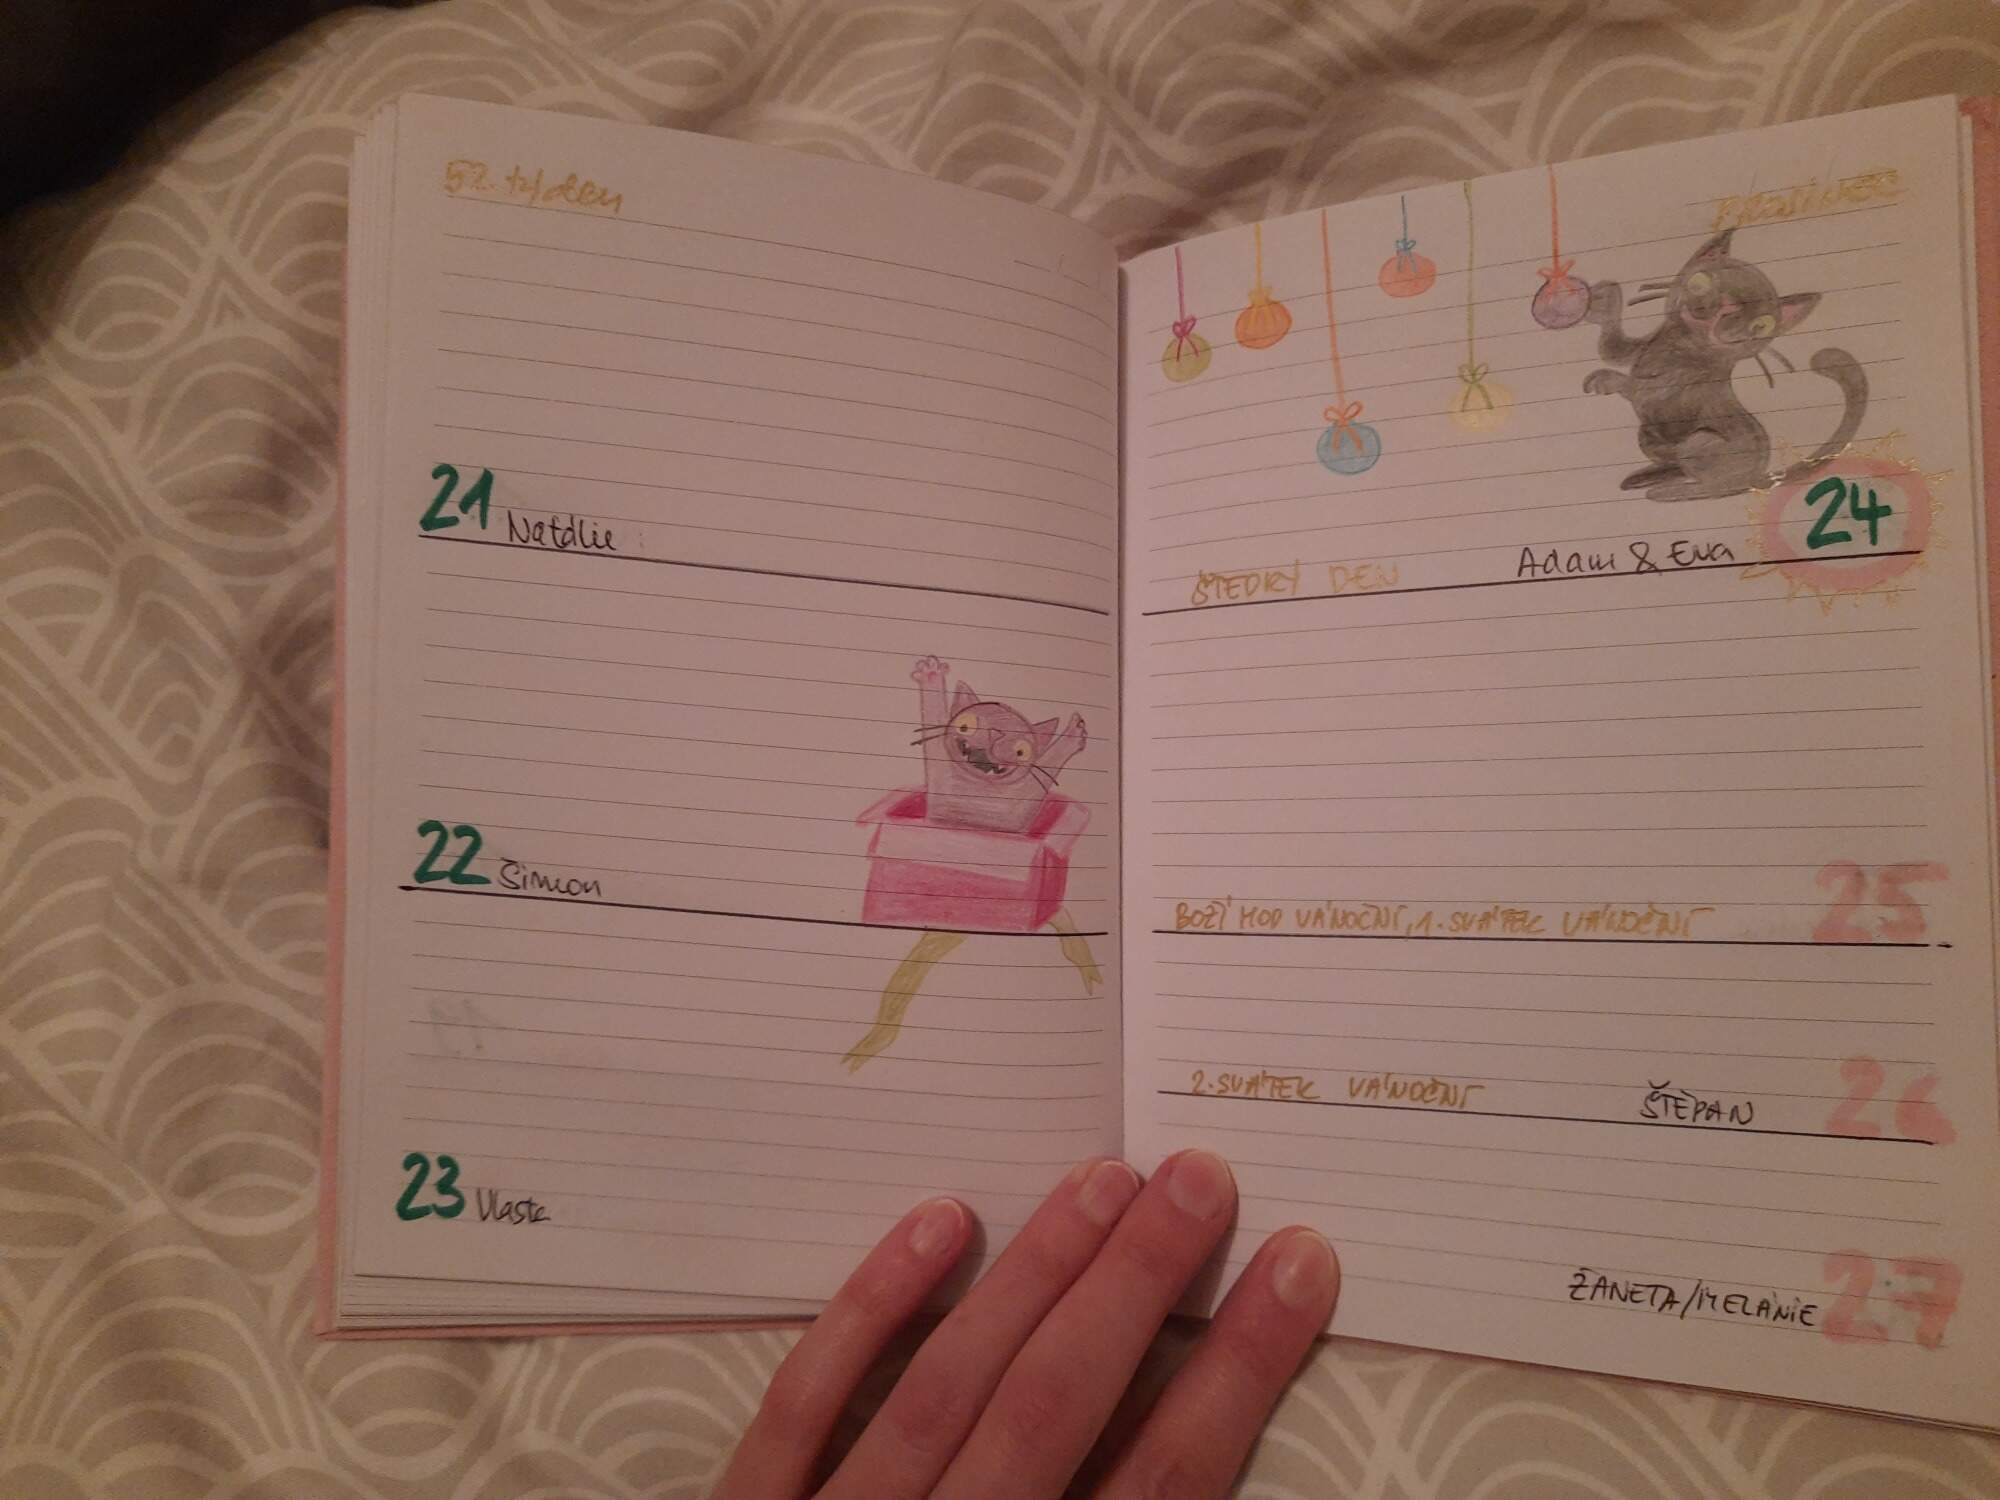 52. týden
21 Natálie
22 Šimon
23 Vlasta
PROSINEC
24
ŠTEDRÝ DEN Adam & Eva
BOŽÍ HOD VÁNOČNÍ, 1. SVÁTEK VÁNOČNÍ 25
2. SVÁTEK VÁNOČNÍ ŠTĚPÁN 26
ŽANETA/MELÁNIE 27